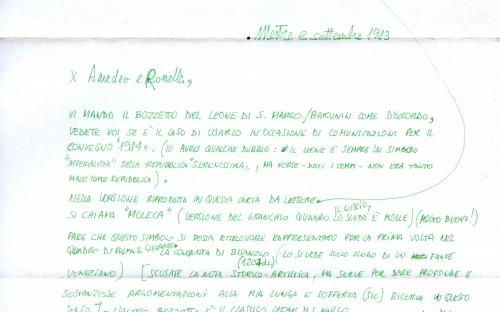 Mestre 2 settembre 1983
X Amedeo e Rosella,
VI MANDO IL BOZZETTO DEL LEONE DI S. MARCO/BAKUNIN COME D'ACCORDO,
VEDETE VOI SE E' IL CASO DI USARLO IN OCCASIONE DI COMUNICAZIONI PER IL
CONVEGNO "1984". (IO AVREI QUALCHE DUBBIO: IL LEONE E' SEMPRE UN SIMBOLO
"IMPERIALISTA" DELLA REPUBBLICA "SERENISSIMA", MA FORSE - DATI I TEMPI - NON ERA TANTO
MALE COME REPUBBLICA).
NELLA VERSIONE RIPRODOTTA IN QUESTA CARTA DA LETTERE
SI CHIAMA "MOLECA" (VERSIONE DEL GRANCHIO QUANDO IL GUSCIO E' MOLLE) (MOLTO BUONO!)
PARE CHE QUESTO SIMBOLO SI POSSA RITROVARE RAPPRESENTATO PER LA PRIMA VOLTA NEL
QUADRO DI PALMA IL GIOVANE LA CONQUISTA DI BISANZIO (1204) (LO SI VEDE SULLO SCUDO DI UN FANTE
VENEZIANO) [SCUSATE LA NOTA STORICO-ARTISTICA, MA SERVE PER DARE PROFONDE E
SOSTANZIOSE ARGOMENTAZIONI ALLA MIA LUNGA E SOFFERTA (SIC) RICERCA IN QUESTO